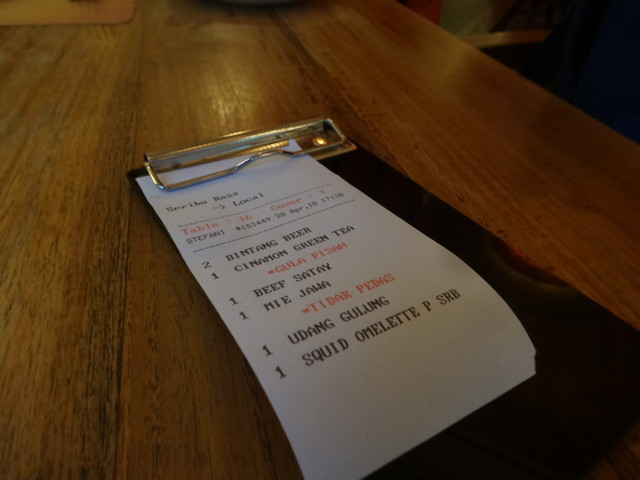 Seribu Rasa
-> Local
Table : 16 Cover : 3
STEFANI #153469 28 Apr,18 17:38
2 BINTANG BEER
1 CINAMON GREEN TEA
*GULA PISAH
1 BEEF SATAY
1 MIE JAWA
*TIDAK PEDAS
1 UDANG GULUNG
1 SQUID OMELETTE P SRB